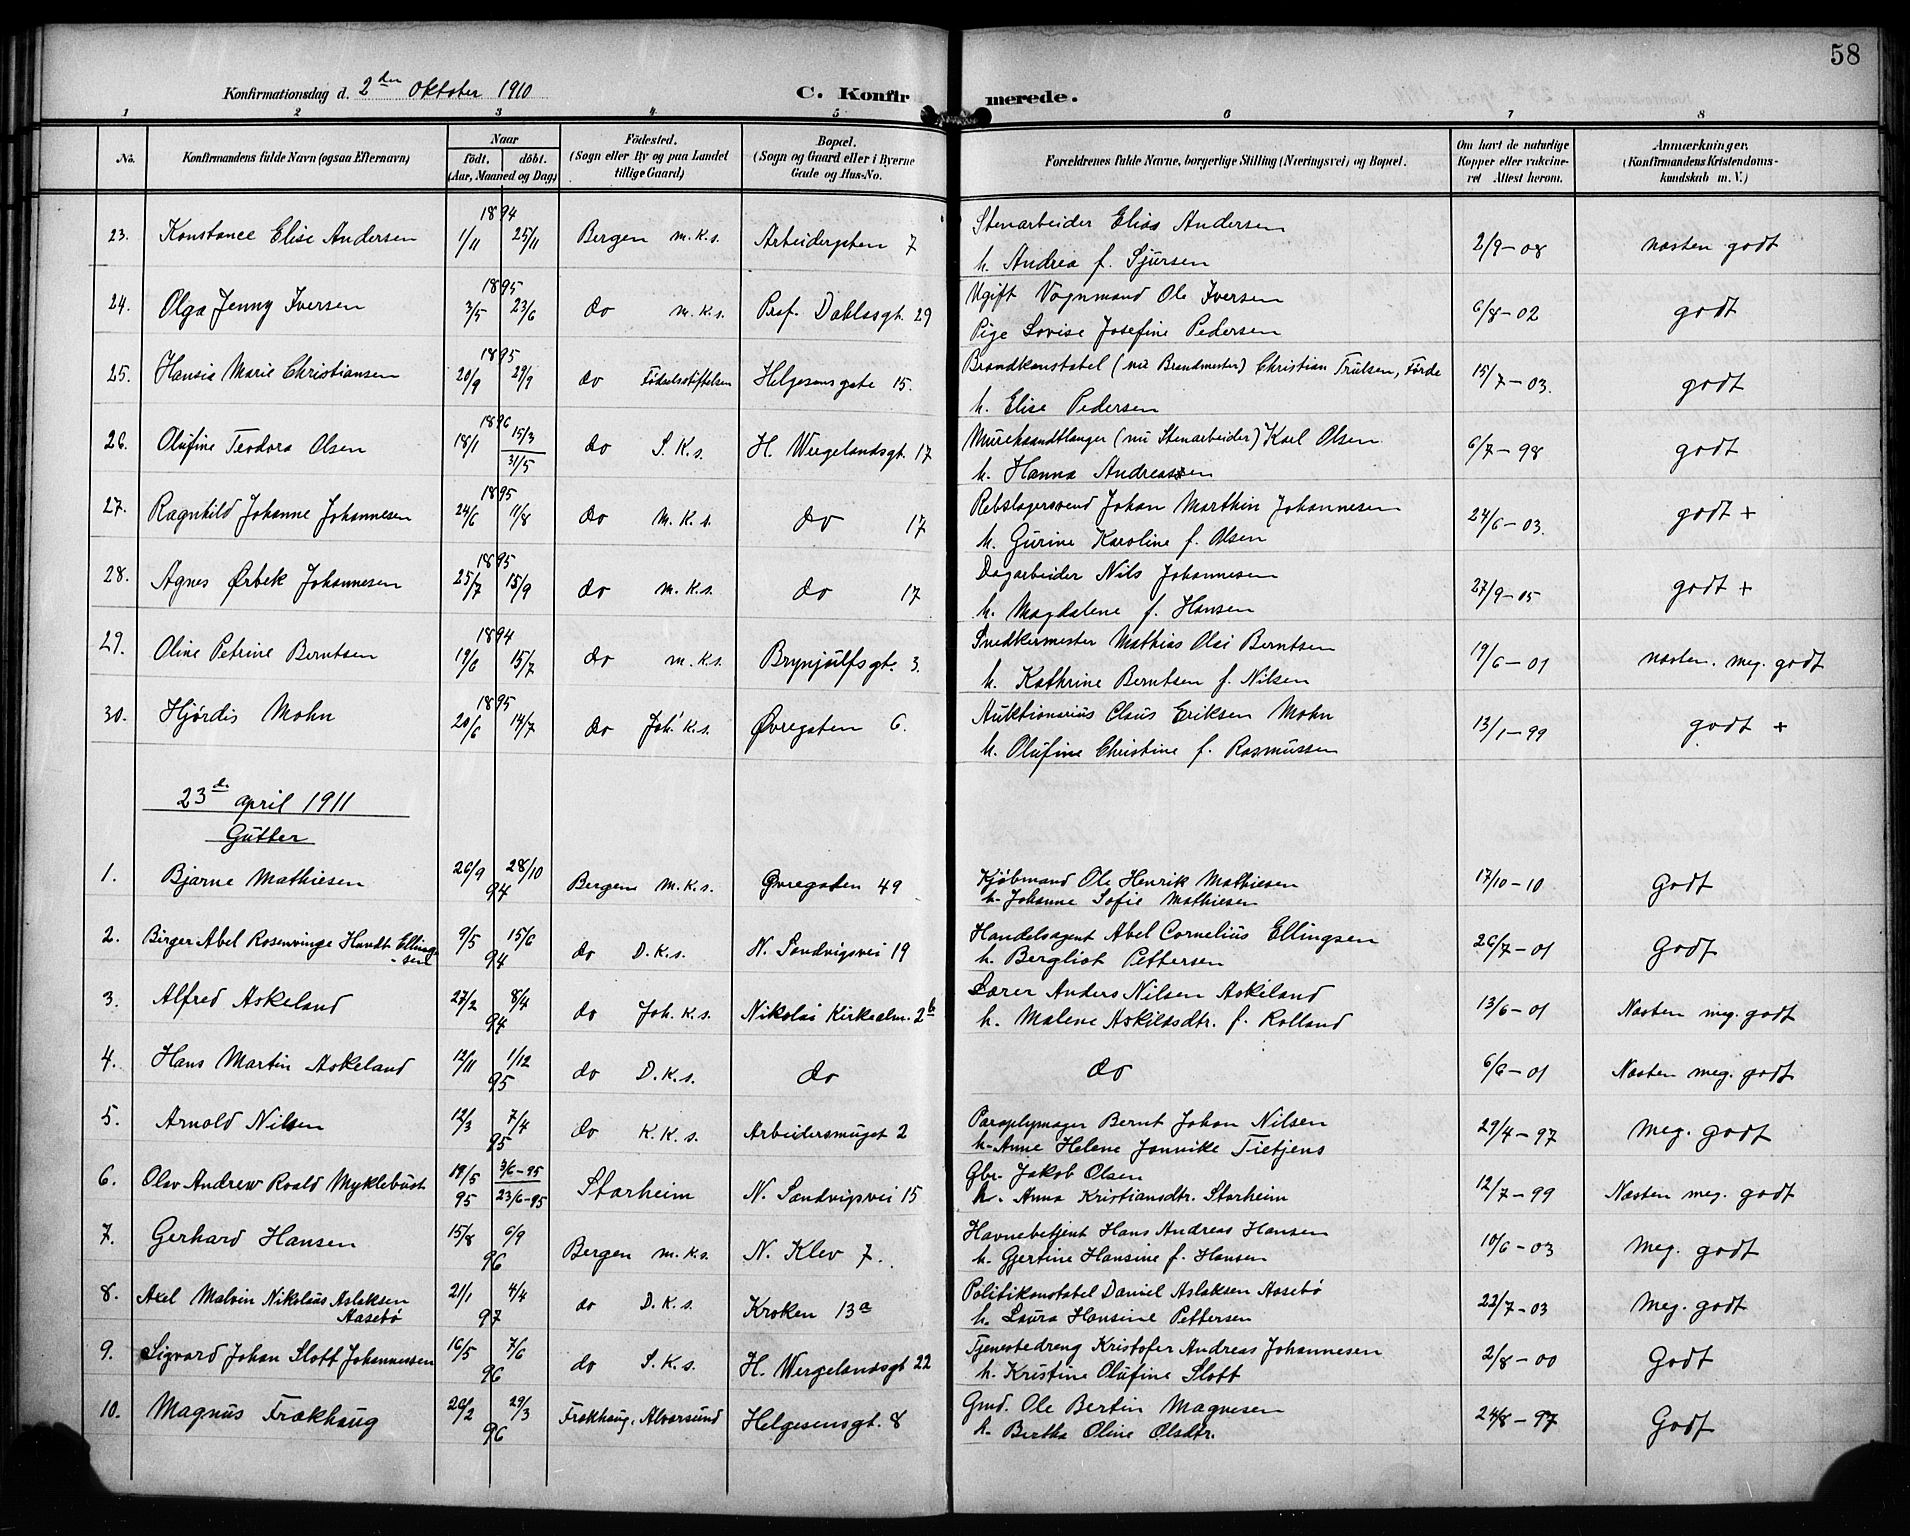 58
Konfirmationsdag d. 2den Oktober 1910
C. Konfirmerede.
1 2 3 4 5 6 7 8
No. Konfirmandens fulde Navn (ogsaa Efternavn) Naar födt. döbt. (Aar, Maaned og Dag) Födested. (Sogn eller By og paa Landet tillige Gaard) Bopæl. (Sogn og Gaard eller i Byerne Gade og Hus-No. Forældrenes fulde Navne, borgerlige Stilling (Næringsvei) og Bopæl. Om havt de naturlige Kopper eller vakcineret Attest herom. Anmærkninger. (Konfirmandens Kristendomskundskab m. V.)
23. Konstance Elise Andersen 1894 1/11 25/11 Bergen m.k.s. Arbeidergaten 7 Stenarbeider Elias Andersen 2/9-08 næsten godt
h. Andrea f. Sjursen
24. Olga Jenny Iversen 1895 3/5 23/6 do m.k.s. Prof. Dahlsgt. 29 Ugift Vognmand Ole Iversen 6/8-02 godt
Pige Lovise Josefine Pedersen
25. Hansia Marie Christiansen 1895 20/9 29/9 do Fødselsstiftelsen Helgesensgate 15. Brandkonstabel (nu Brandmester) Christian Trulsen, Førde 15/7-03. godt
h. Elise Pedersen
26. Olufine Teodora Olsen 1896 18/1 15/3 31/5 do S.K.s. H. Wergelandsgt. 17 Murehaandtlanger (nu Stenarbeider) Karl Olsen 6/7-98 godt
h. Hanna Andreassen
27. Ragnhild Johanne Johannesen 1895 24/6 11/8 do M.K.s. do 17 Rebslagersvend Johan Marthin Johannesen 24/6-03. godt +
h. Gurine Karoline f. Olsen
28. Agnes Ørbek Johannesen 1895 25/7 15/9 do m.k.s. do 17 Dagarbeider Nils Johannesen 27/9-05 godt +
h. Magdalene f. Hansen
29. Oline Petrine Berntsen 1894 19/6 15/7 do m.k.s. Brynjulfsgt. 3. Snedkermester Mathias Olai Berntsen 19/6-01 næsten. meg. godt
h. Kathrine Berntsen f. Nilsen
30. Hjørdis Mohn 1895 20/6 14/7 do Joh. K.s. Øvregaten 6. Auktionarius Claus Eriksen Mohn 13/1-99 godt +
h. Olufine Christine f. Rasmussen
23de april 1911
Gutter
1. Bjarne Mathiesen 26/9 28/10 94 Bergen M.K.s. Øvregaten 49 Kjöbmand Ole Henrik Mathiesen 17/10-10 Godt
h. Johanne Sofie Mathiesen
2. Birger Abel Rosenvinge Handt Ellingsen 9/5 15/6 94 do D.K.s. N. Sandvigsvei 19 Handelsagent Abel Cornelius Ellingsen 26/7-01 Godt
h. Bergliot Pettersen
3. Alfred Askeland 27/2 8/4 94 do Joh. K.s. Nikolai Kirkealm. 2b Lærer Anders Nilsen Askeland 13/6-01 Næsten meg. godt
h. Malene Askildsdtr. f. Rolland
4. Hans Martin Askeland 12/11 1/12 95 do D.K.s. do do 6/6-01 Næsten meg. godt
5. Arnold Nilsen 12/3 7/4 95 do K.K.s. Arbeidersmuget 2 Paraplymager Bernt Johan Nilsen 29/4-97 Meg. godt
h. Anne Helene Jannike Tietjens
6. Olav Andrew Roald Myklebust 19/5 95 3/6-95 23/6-95 Starheim N. Sandvigsvei 15 Gbr. Jakob Olsen 12/7-99 Næsten meg. godt
h. Anna Kristiansdtr. Starheim
7. Gerhard Hansen 15/8 6/9 96 Bergen m.k.s. N. Klev 7. Havnebetjent Hans Andreas Hansen 10/6-03 Meg. godt
h. Gjertine Hansine f. Hansen
8. Axel Malvin Nikolius Aslaksen Aasebø 21/1 4/4 97 do D.K.s. Kroken 13a Politikonstabel Daniel Aslaksen Aasebø 22/7-03 Meg. godt
h. Laura Hansine Pettersen
9. Sigvard Johan Slott Johannessen 16/5 7/6 96 do S.K.s. H. Wergelandsgt 22 Tjenestedreng Kristofer Andreas Johannesen 2/8-00 Godt
h. Kristine Olufine Slott
10. Magnus Frækhaug 20/2 29/3 96 Frækhaug, Alvorsund Helgesensgt. 8 Gmd. Ole Bertin Magnesen 24/8-97 Godt
h. Bertha Oline Olsdtr.